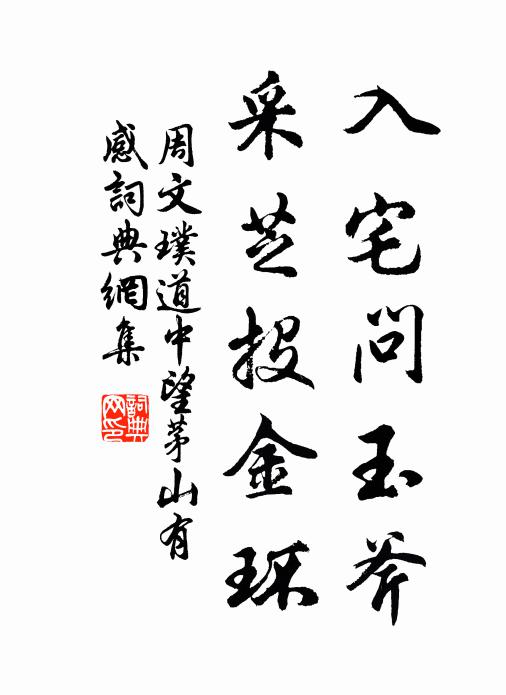 入宅問玉斧
采芝投金環
周文璞道中望茅山有
感詞典網集
詞典
网印